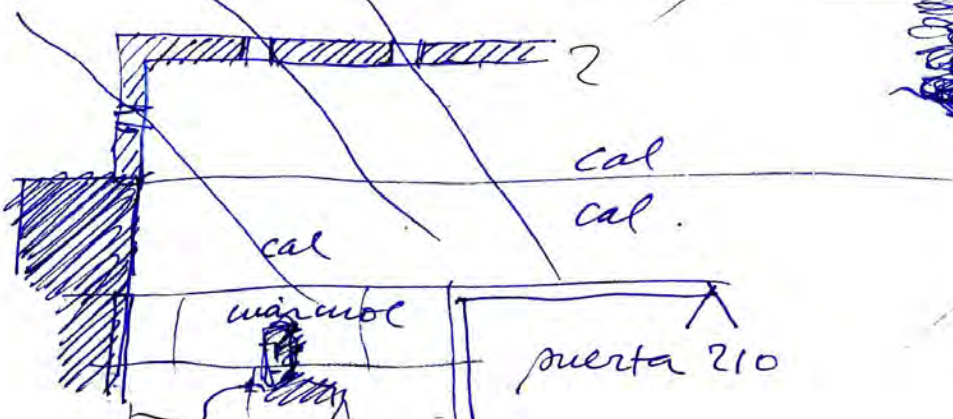 2
cal
cal.
cal
mármol
puerta 210